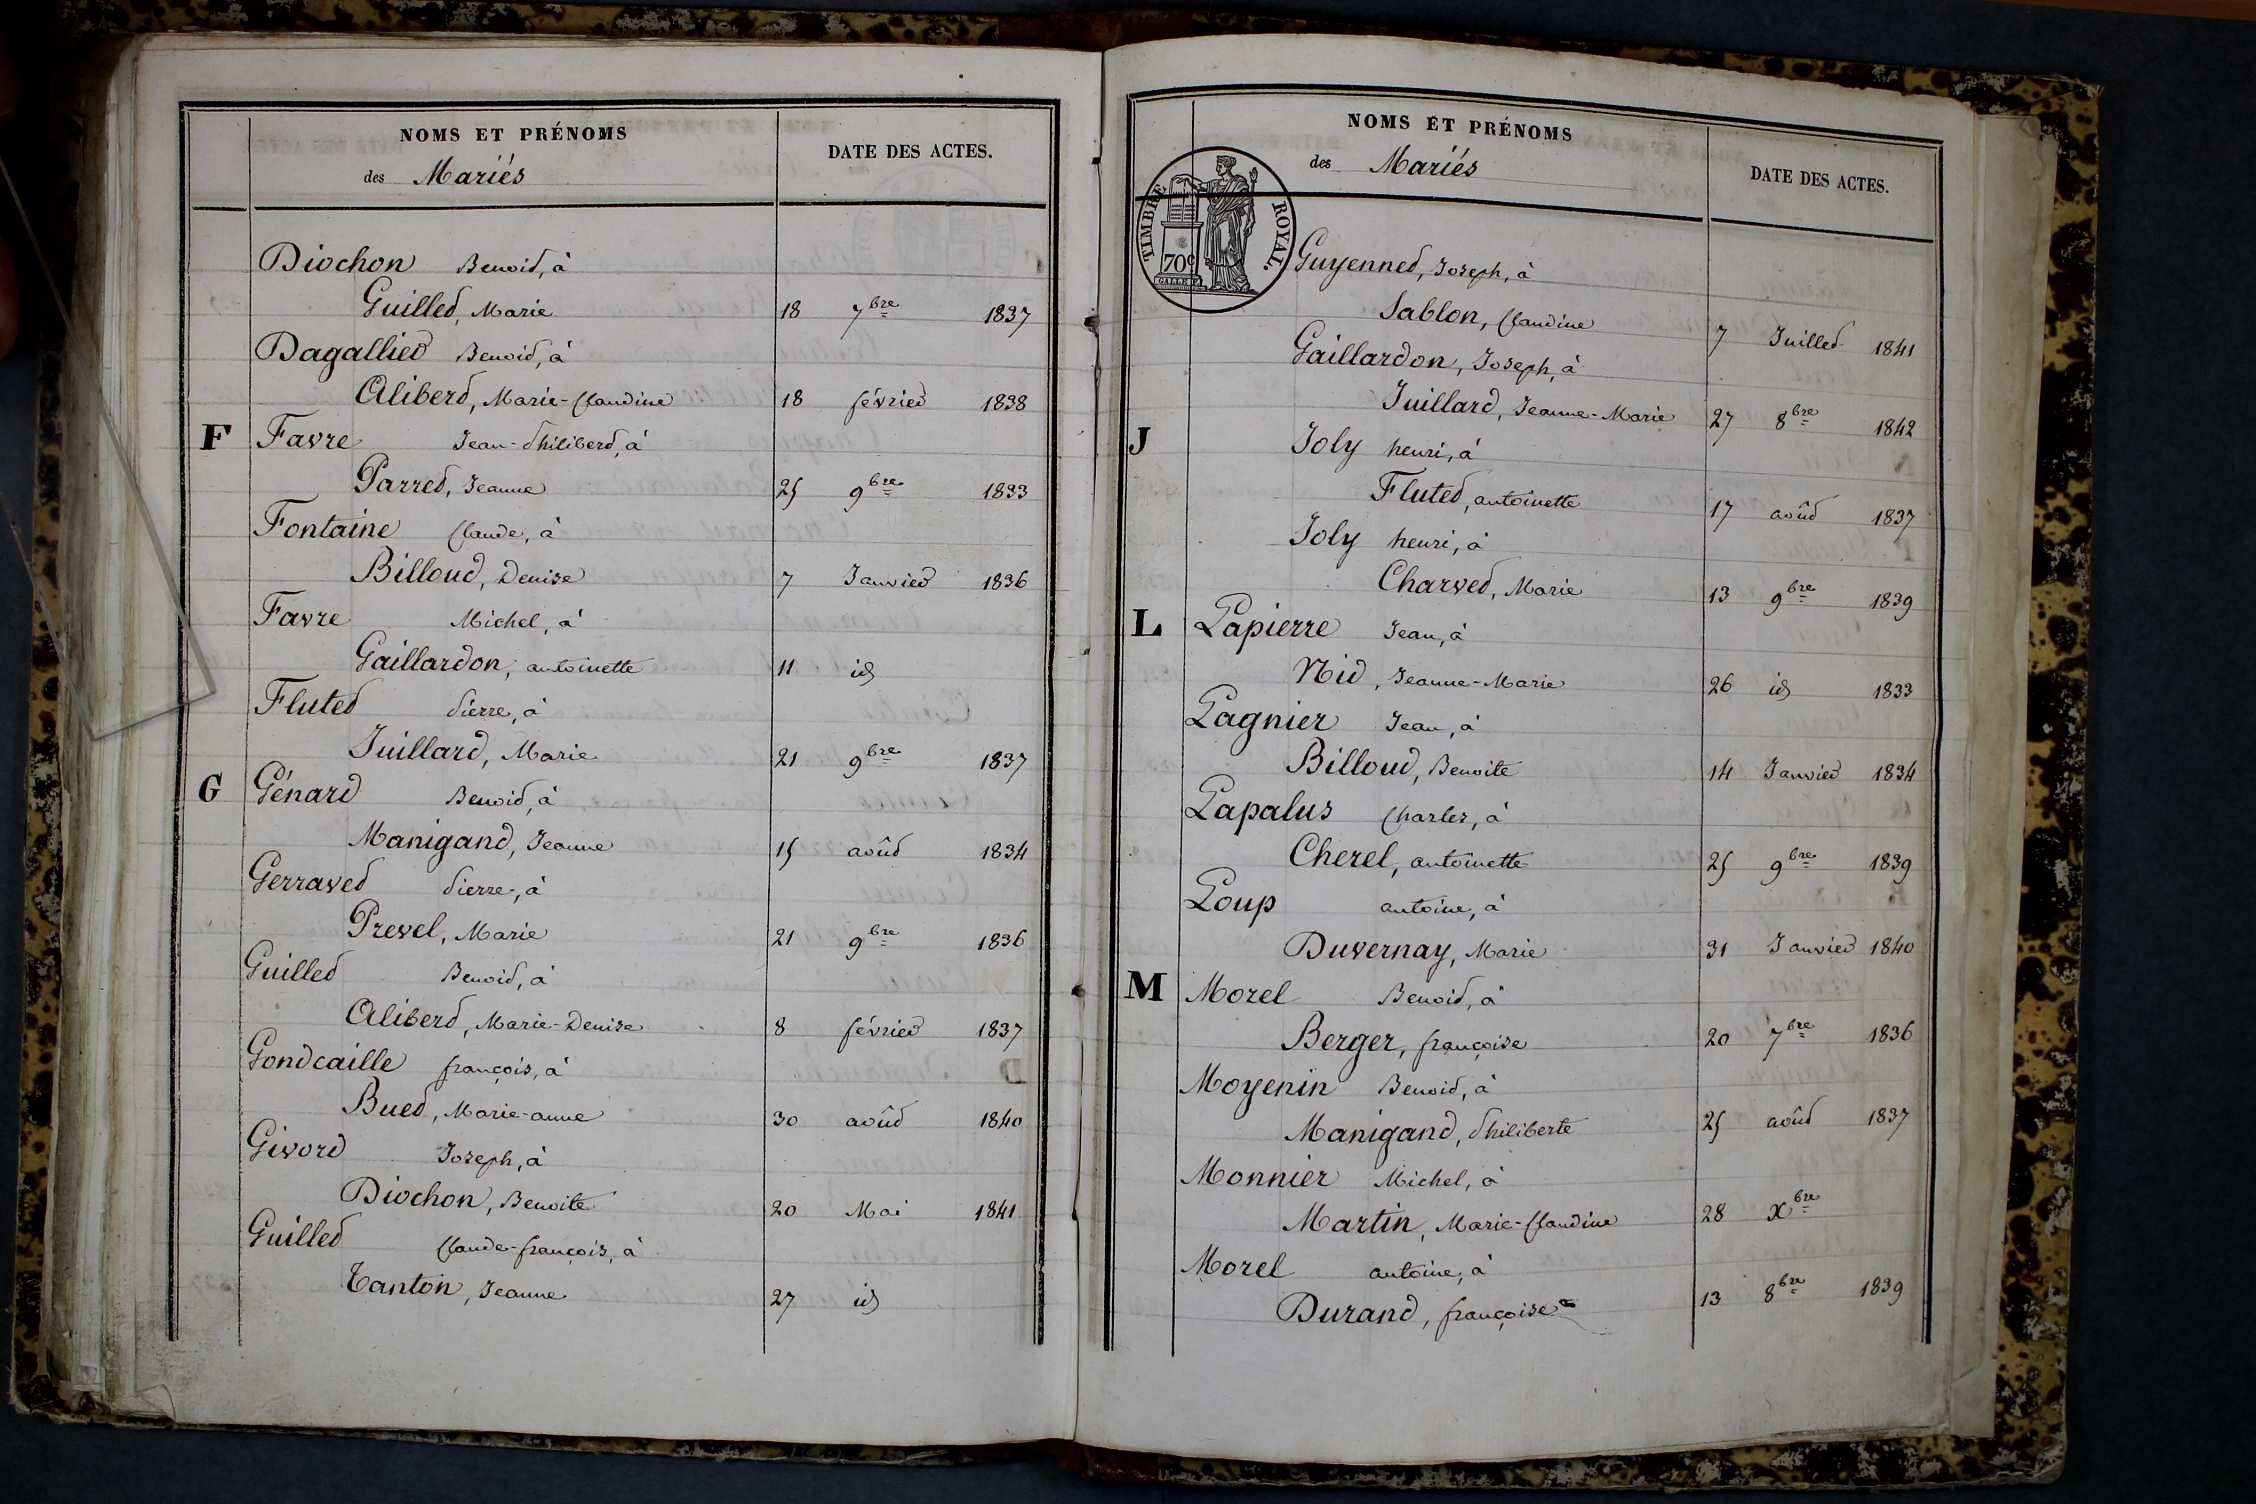 NOMS ET PRÉNOMS
des Mariés
DATE DES ACTES.
Diochon Benoit, à
Guillet, Marie 18 7bre 1837
Dagallier Benoit, à
Alibert, Marie-Claudine 18 février 1838
F Favre Jean-Philibert, à
Parret, Jeanne 25 9bre 1833
Fontaine Claude, à
Billoud, Denise 7 Janvier 1836
Favre Michel, à
Gaillardon, antoinette 11 id
Flutet Pierre, à
Juillard, Marie 21 9bre 1837
G Génard Benoit, à
Manigand, Jeanne 15 août 1834
Gerravet Pierre, à
Prevel, Marie 21 9bre 1836
Guillet Benoit, à
Alibert, Marie-Denise 8 février 1837
Gondcaille françois, à
Buet, Marie-anne 30 août 1840
Givord Joseph, à
Diochon, Benoite 20 Mai 1841
Guillet Claude-françois, à
Tanton, Jeanne 27 id
NOMS ET PRÉNOMS
des Mariés
DATE DES ACTES.
TIMBRE ROYAL.
70c
Guyennet, Joseph, à
Sablon, Claudine 7 Juillet 1841
Gaillardon, Joseph, à
Juillard, Jeanne-Marie 27 8bre 1842
J Joly henri, à
Flutet, antoinette 17 août 1837
Joly henri, à
Charvet, Marie 13 9bre 1839
L Lapierre Jean, à
Nid, Jeanne-Marie 26 id 1833
Lagnier Jean, à
Billoud, Benoite 14 Janvier 1834
Lapalus Charles, à
Cherel, antoinette 25 9bre 1839
Loup antoine, à
Duvernay, Marie 31 Janvier 1840
M Morel Benoit, à
Berger, françoise 20 7bre 1836
Moyenin Benoit, à
Manigand, Philiberte 25 août 1837
Monnier Michel, à
Martin, Marie-Claudine 28 Xbre
Morel antoine, à
Durand, françoise 13 8bre 1839